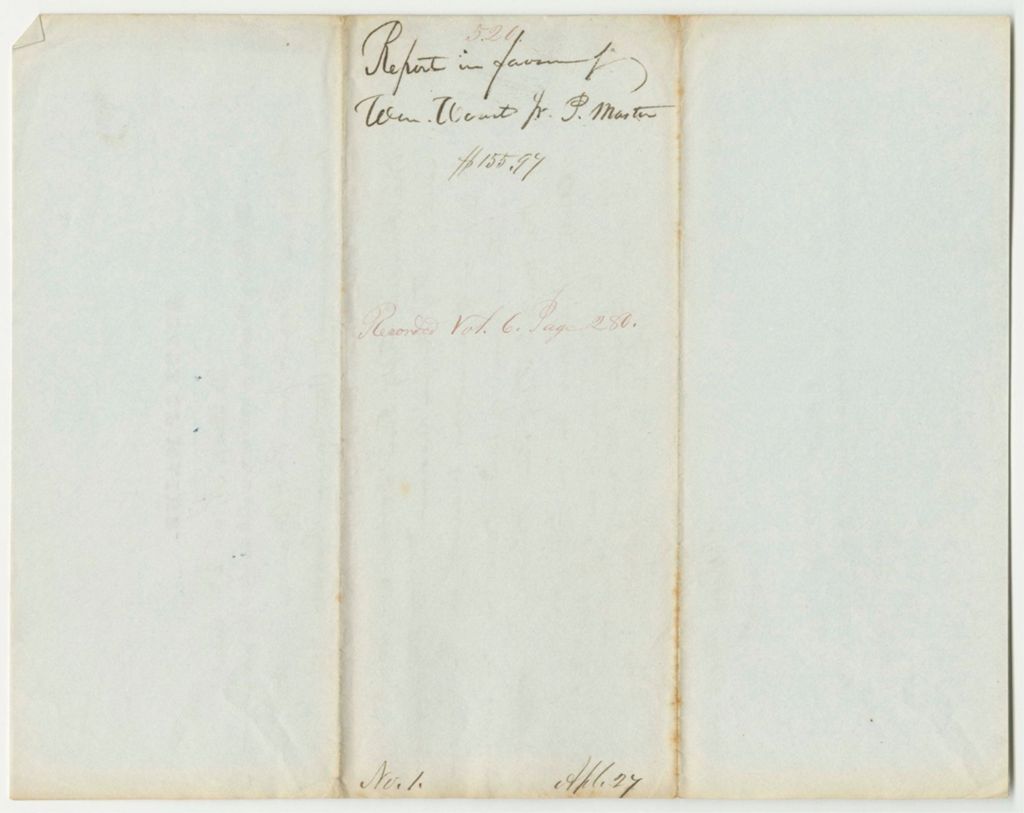 520.
Report in favor of
Wm. Jr. P. Master
$155.97
Recorded Vol. 6. Page 280.
No. 1. Apl. 27